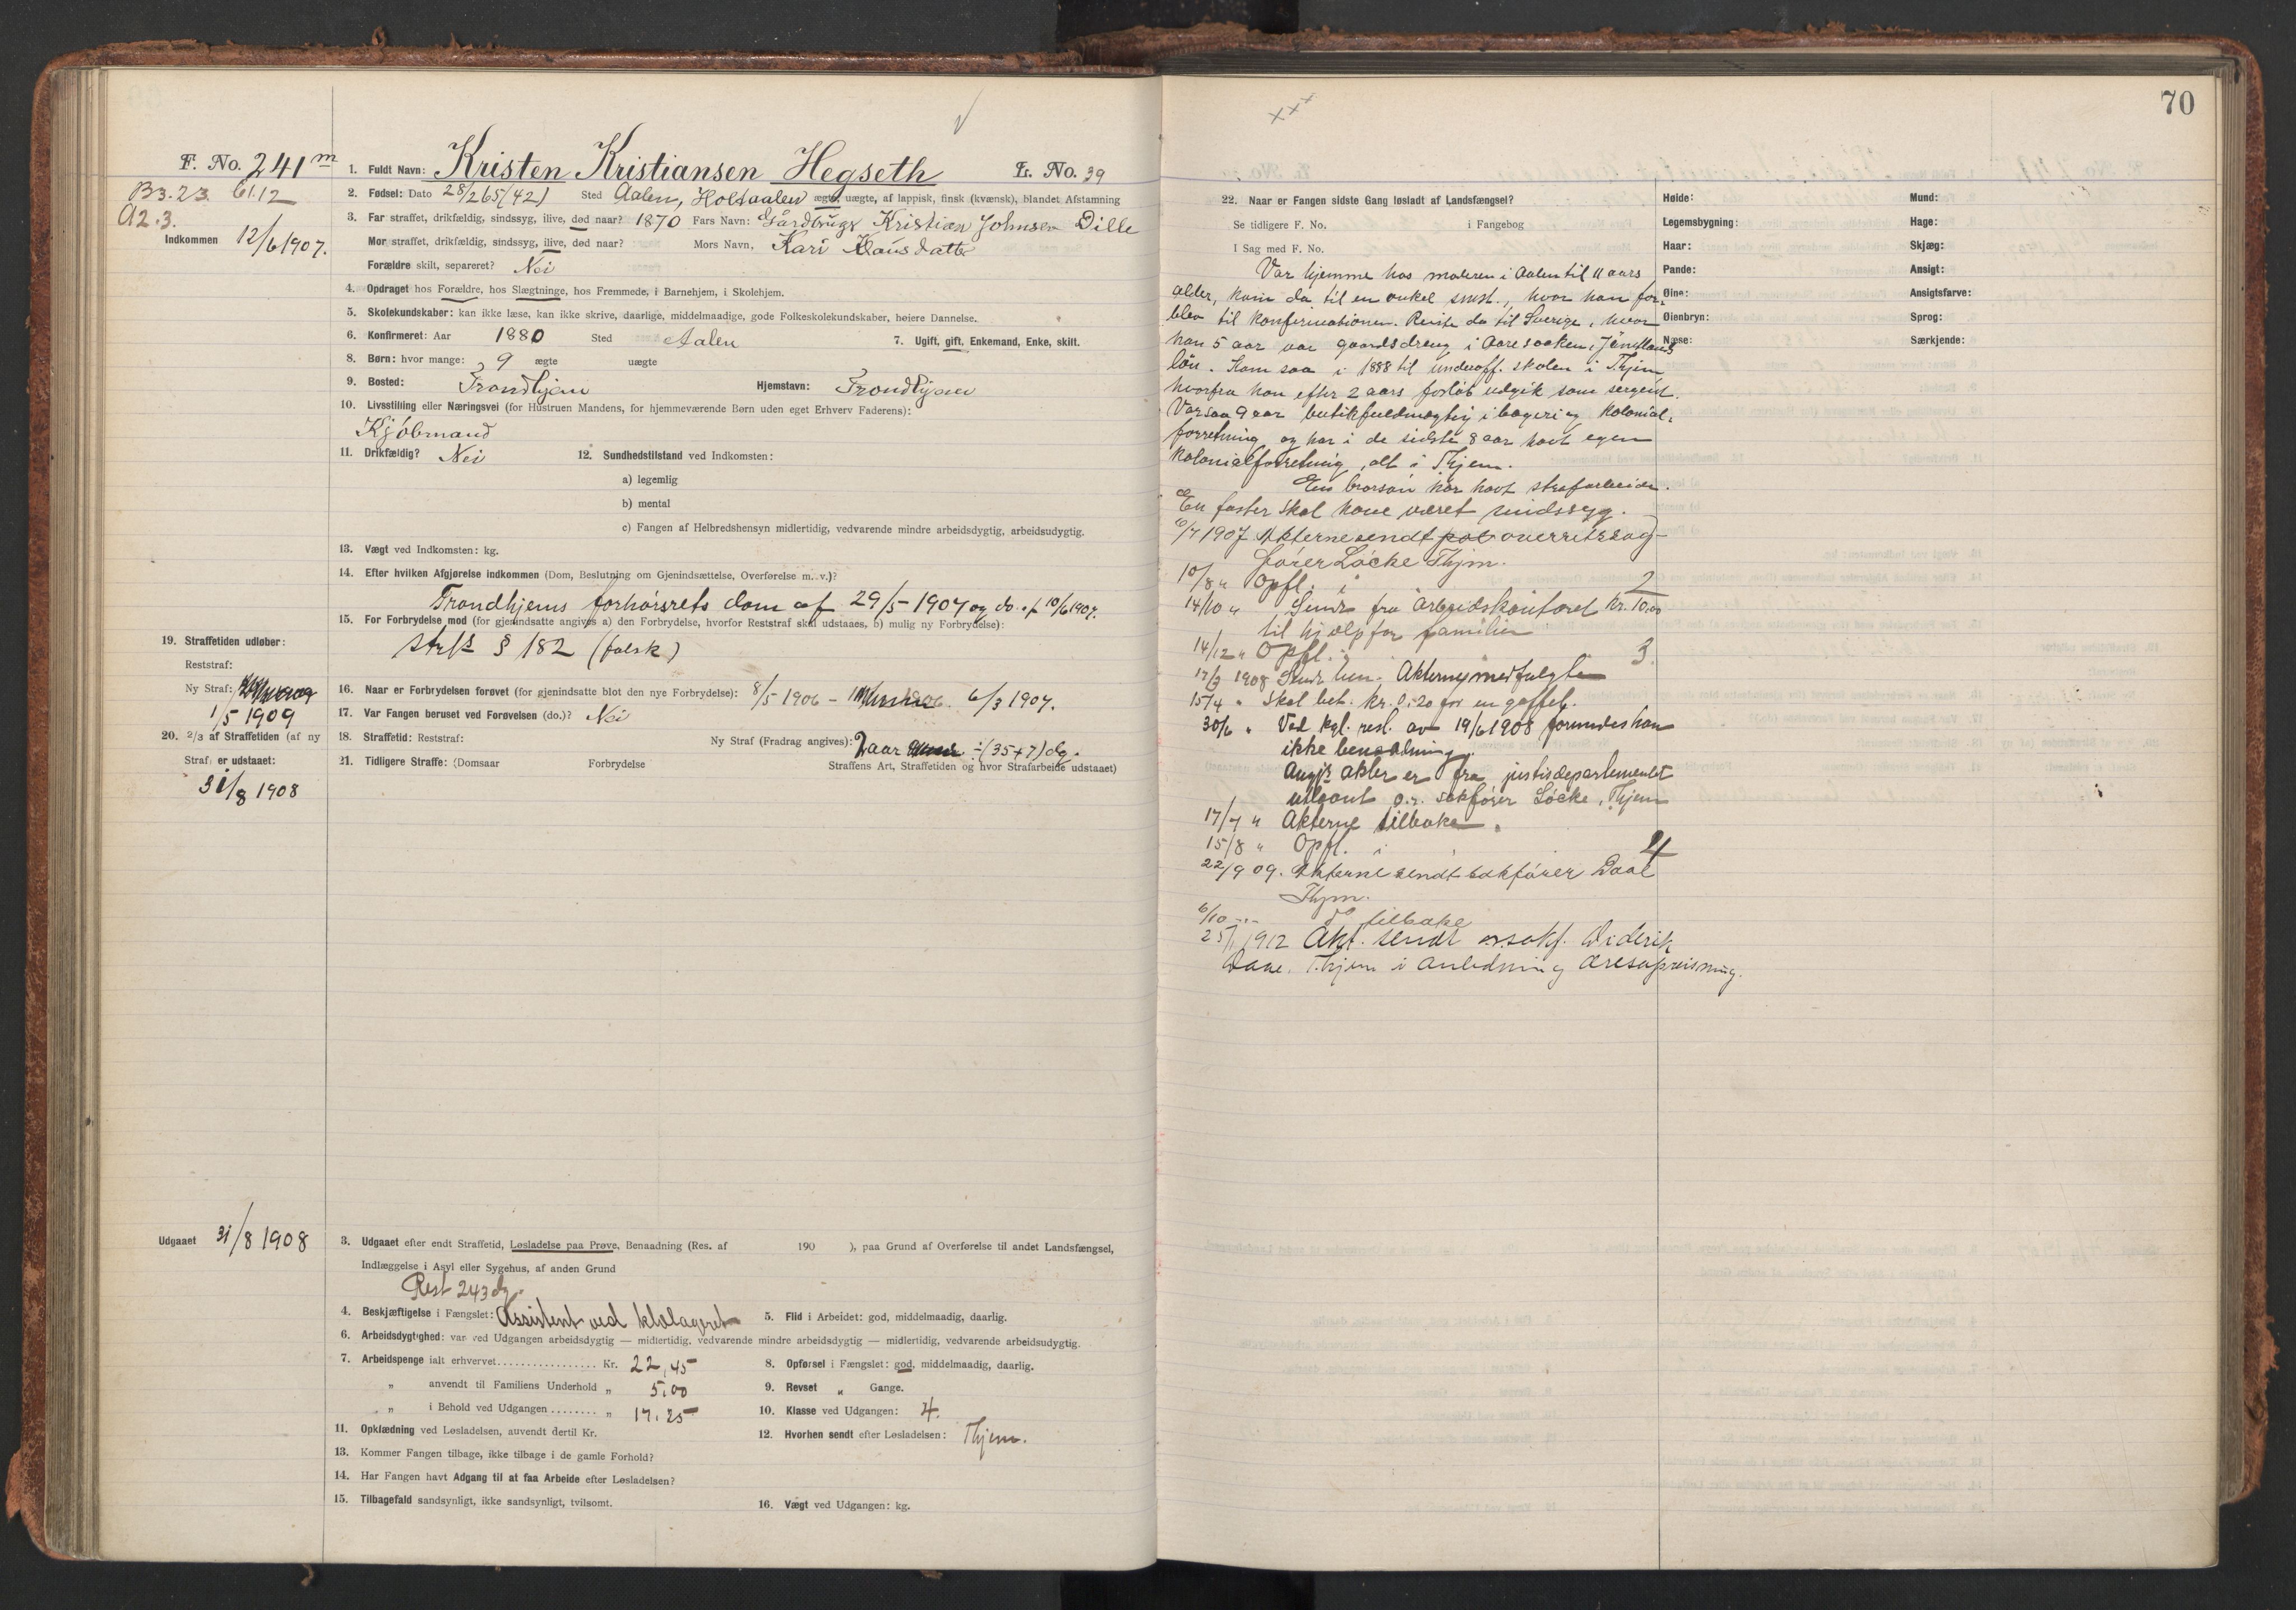 F. No. 241 m
B3.23. C1.12
A2.3.
Indkommen 12/6 1907.
1. Fuldt Navn: Kristen Kristiansen Hegseth L. No. 39
2. Fødsel: Dato 28/2 65 (42) Sted Aalen, Holtaalen ægte, uægte, af lappisk, finsk (kvænsk), blandet Afstamning
3. Far straffet, drikfældig, sindssyg, ilive, død naar? 1870 Fars Navn: Gårdbrugr Kristian Johnsen Dille
Mor straffet, drikfældig, sindssyg, ilive, død naar? Mors Navn, Kari
Forældre skilt, separeret? Nei
4. Opdraget hos Forældre, hos Slægtninge, hos Fremmede, i Barnehjem, i Skolehjem.
5. Skolekundskaber: kan ikke læse, kan ikke skrive, daarlige, middelmaadige, gode Folkeskolekundskaber, høiere Dannelse.
6. Konfirmeret: Aar 1880 Sted Aalen 7. Ugift, gift, Enkemand, Enke, skilt.
8. Børn: hvor mange: 9 ægte uægte
9. Bosted: Trondhjem Hjemstavn: Trondhjem
10. Livsstilling eller Næringsvei (for Hustruen Mandens, for hjemmeværende Børn uden eget Erhverv Faderens):
Kjøbmand
11. Drikfældig? Nei 12. Sundhedstilstand ved Indkomsten:
a) legemlig
b) mental
c) Fangen af Helbredshensyn midlertidig, vedvarende mindre arbeidsdygtig, arbeidsudygtig.
13. Vægt ved Indkomsten: kg.
14. Efter hvilken Afgjørelse indkommen (Dom, Beslutning om Gjenindsættelse, Overførelse m. v.)?
Trondhjems forhørsrets dom af 29/5-1907 og do. af 10/6 1907.
15. For Forbrydelse mod (for gjenindsatte angives a) den Forbrydelse, hvorfor Reststraf skal udstaaes, b) mulig ny Forbrydelse):
§ 182 (falsk)
19. Straffetiden udløber:
Reststraf:
Ny Straf:
1/5 1909
16. Naar er Forbrydelsen forøvet (for gjenindsatte blot den nye Forbrydelse): 8/5 1906 – 6/3 1907.
17. Var Fangen beruset ved Forøvelsen (do.)? Nei
20. 2/3 af Straffetiden (af ny
Straf) er udstaaet:
31/8 1908
18. Straffetid: Reststraf: Ny Straf (Fradrag angives): 2 aar ÷ (35+7) dg.
21. Tidligere Straffe: (Domsaar Forbrydelse Straffens Art, Straffetiden og hvor Strafarbeide udstaaet)
Udgaaet 31/8 1908
3. Udgaaet efter endt Straffetid, Løsladelse paa Prøve, Benaadning (Res. af 190 ), paa Grund af Overførelse til andet Landsfængsel,
Indlæggelse i Asyl eller Sygehus, af anden Grund
Rest 243 dg.
4. Beskjæftigelse i Fængslet: Assistent ved klælageret 5. Flid i Arbeidet: god, middelmaadig, daarlig.
6. Arbeidsdygtighed: var ved Udgangen arbeidsdygtig — midlertidig, vedvarende mindre arbeidsdygtig — midlertidig, vedvarende arbeidsudygtig.
7. Arbeidspenge ialt erhvervet ................. Kr. 22,45 8. Opførsel i Fængslet: god, middelmaadig, daarlig.
„ anvendt til Familiens Underhold „ 5,00 9. Revset „ Gange.
„ i Behold ved Udgangen ........ „ 17.25 10. Klasse ved Udgangen: 4.
11. Opklædning ved Løsladelsen, anvendt dertil Kr. 12. Hvorhen sendt efter Løsladelsen: Thjem.
13. Kommer Fangen tilbage, ikke tilbage i de gamle Forhold?
14. Har Fangen havt Adgang til at faa Arbeide efter Løsladelsen?
15. Tilbagefald sandsynligt, ikke sandsynligt, tvilsomt. 16. Vægt ved Udgangen: kg.
70
xxx
22. Naar er Fangen sidste Gang løsladt af Landsfængsel?
Se tidligere F. No. i Fangebog
I Sag med F. No.
Høide: Mund:
Legemsbygning: Hage:
Haar: Skjæg:
Pande: Ansigt:
Øine: Ansigtsfarve:
Øienbryn: Sprog:
Næse: Særkjende:
Var hjemme hos moderen i Aalen til 11 aars
alder, kom da til en onkel smst., hvor han for-
blev til konfirmationen. Reiste da til Sverige, hvor
han 5 aar var gaardsdreng i Aaresocken, Jämtlands
län. Kom saa i 1888 til underoff. skolen i Thjem
hvorfra han efter 2 aars forløb udgik som sergent.
Var saa 9 aar butikfuldmægtig i bageri og kolonial-
forretning og har i de sidste 8 aar havt egen
kolonialforretning, alt i Thjem.
En brorsøn har havt strafarbeide.
En faster skal have været sindssyg.
6/7 1907 Akterne sendt overretssag-
fører Løcke Thjm.
10/8 " Opfl. i 2
14/10 " Sendt fra arbeidskontoret kr. 10.00
til hjælp for familien
14/12 " Opfl. i 3.
17/3 1908 Akterne medfulgte
15/4 " Skal bet. kr. 0.20 for en gaffel.
30/6 " Ved kgl. resl. av 19/6 1908 forundes han
ikke benaadning.
Angjs akter er fra justisdepartementet
utlaant o.r. sakfører Løcke, Thjem
17/7 " Akterne tilbake.
15/8 " Opfl. i 4
22/9 09. Akterne sendt sakfører Daae
Thjm.
6/10 -"- do tilbake
25/1 1912 Akt. sendt o.r.sakf. Diderik
Daae, Thjem i anledning æresopreisning.